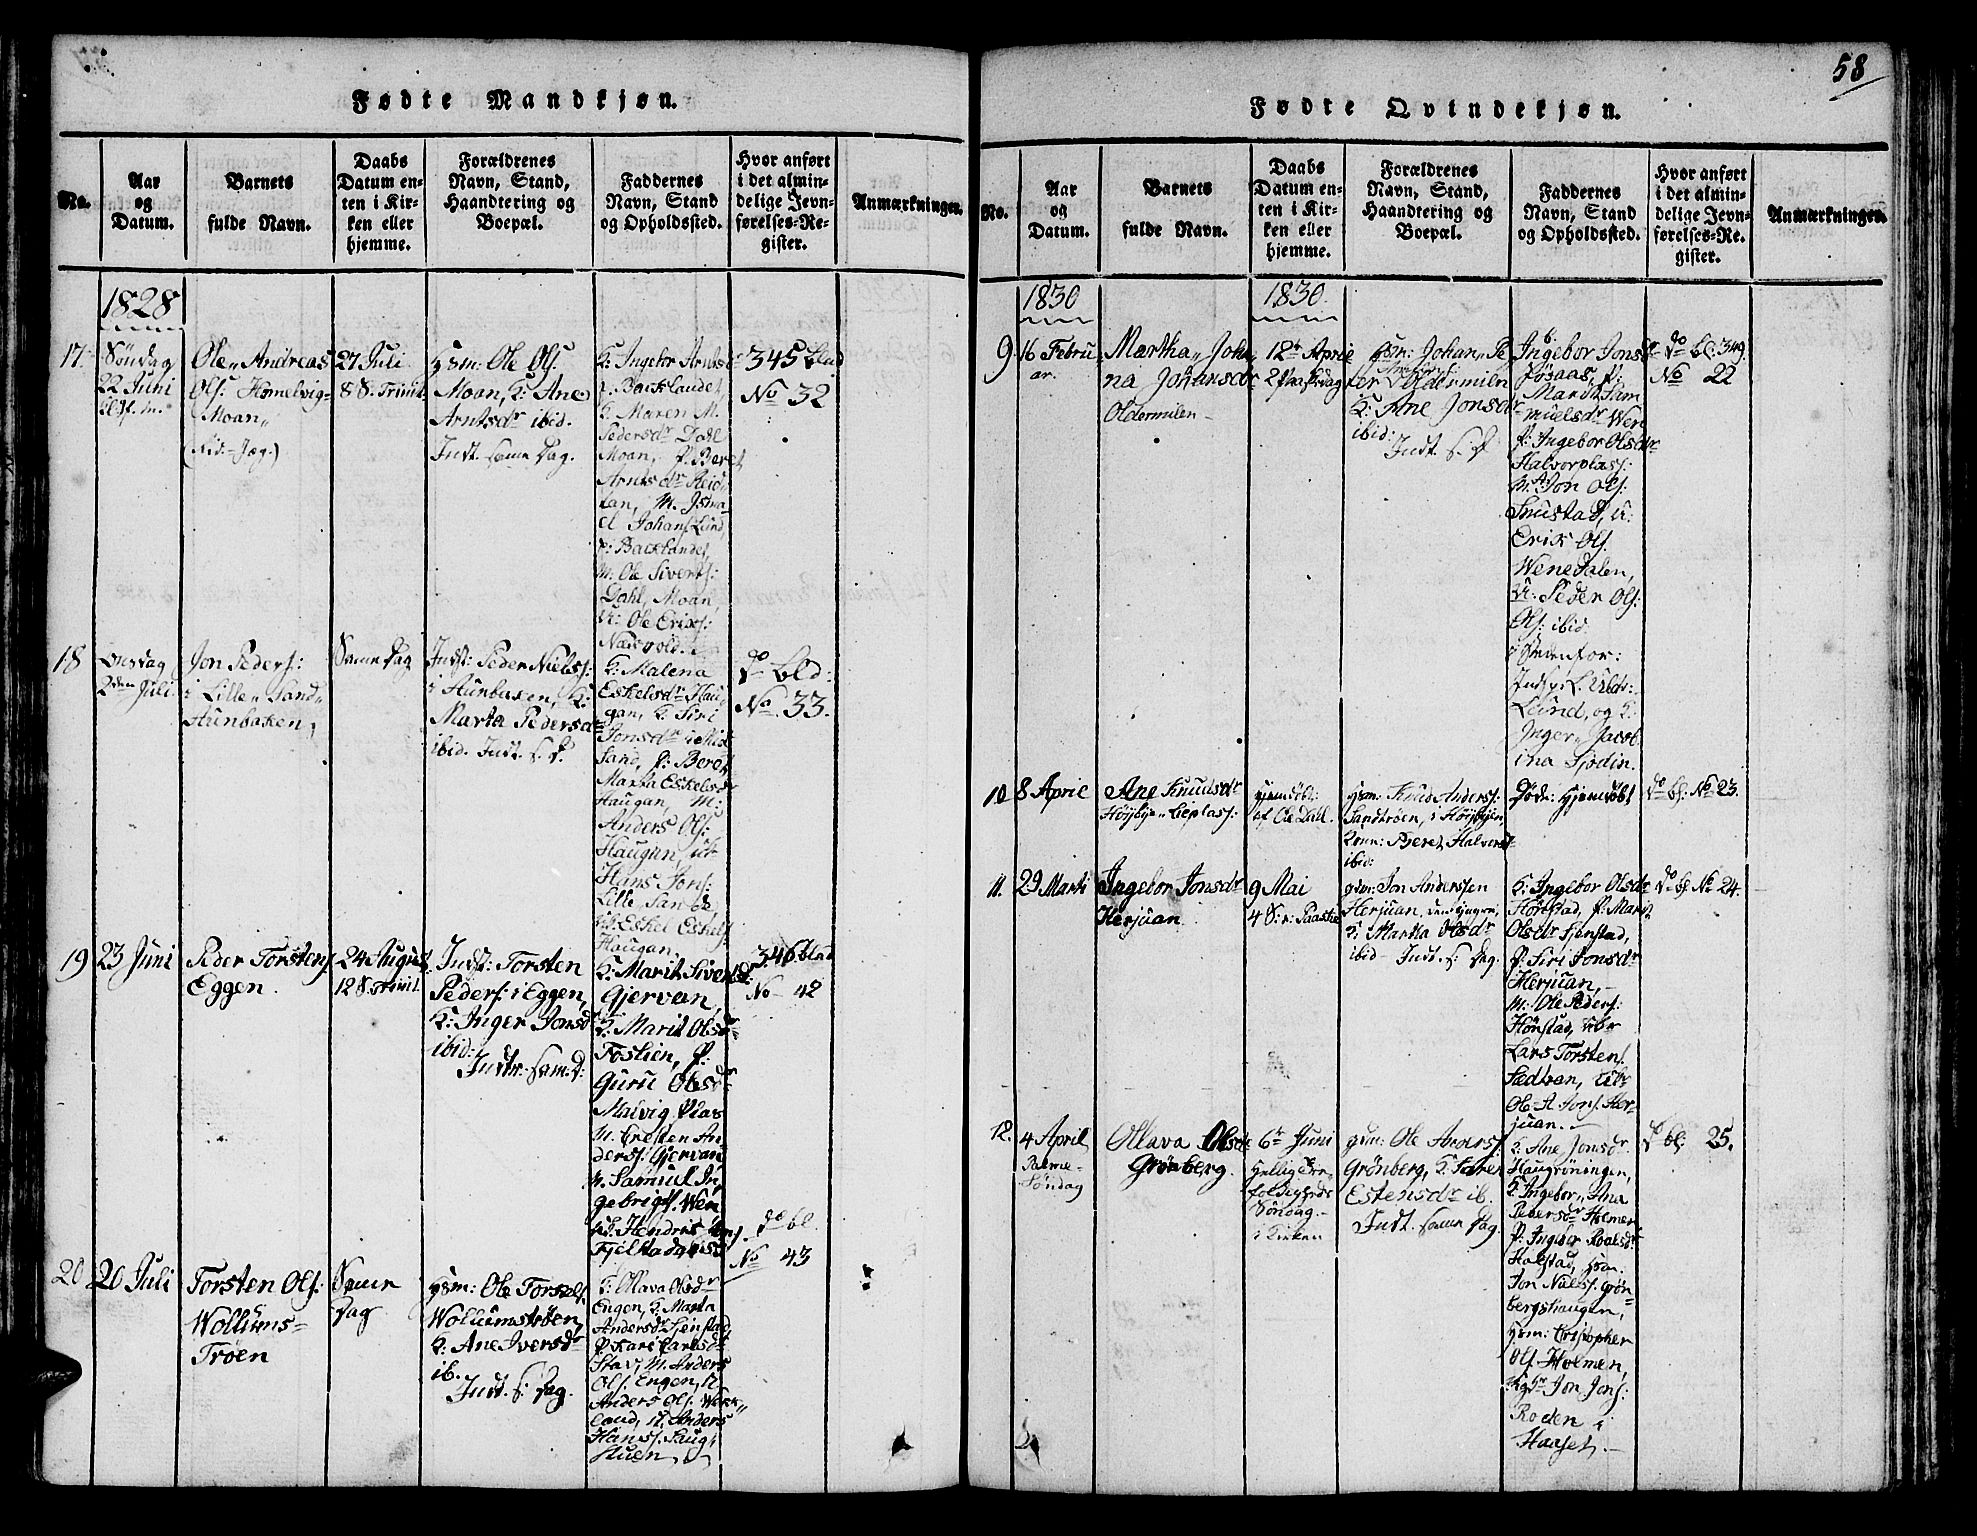 Fødte Mandkjøn.
No.
Aar
og
Datum.
Barnets
fulde Navn.
Daabs
Datum en-
ten i Kir-
ken eller
hjemme.
Forældrenes
Navn, Stand,
Haandtering og
Boepæl.
Faddernes
Navn, Stand
og Opholdssted.
Hvor anført
i det almin-
delige Jevn-
førelses-Re-
gister.
Anmærkninger.
1828
17.
Søndag
22 Juni
Ole Andreas
Ols: Homelvig-
Moan,
(Nid:-Jæg.)
27 Juli
8 S. Trinit.
gsm: Ole Ols.
Moan, K: Ane
Arntsdr ibid.
Indt. samme Dag.
K: Ingebr Arntsd
Backlandet,
K: Maren M.
Pedersdr Dahl
Moan, P. Beret
Arntsdr Reid-
tan, M. Isma-
el Johans Lund,
Backlandet,
M. Ole Siverts:
Dahl, Moan,
U: Ole Erixs:
Næsvold.
345 blad
No 32
18
Onsdag
2den Juli.
Jon Peders:
i Lille Sand
Aunbaken,
Samme Dag
Inds: Peder Niels:
i Aunbaken, K:
Marta Pedersdr
ibid. Indt. s. D.
K: Malena
Eskelsdr Hau-
gan, K: Siri
Jonsdr i Mid-
Sand, P: Beret
Marta Eskelsd
Haugan, M:
Anders Ols:
Haugan, U:
Hans Jons:
Lille Sande
U: Eskel Eskels
Haugan.
do bld:
No. 33.
19
23 Juni
Peder Torstens
Eggen.
24 August
12 S. Trinit.
Inds: Torsten
Peders: i Eggen,
K: Inger Jonsd
ibid:
Indtr. Sam. D:
K: Marit Siversd:
Gjervan,
K: Marit Olsdr
Fostien, P:
Guru Olsdr
Malvig Plas
M. Cresten An
ders: Gjervan
M. Samuel In
gebrigts. Wen
U. Hendric
Fjelstad
346 blad
No 42
20
20 Juli
Torsten Ols:
Wollums-
Trøen
Samme
Dag
gsm: Ole Torstens.
Wollumstrøen,
K: Ane Iversdr
ib.
Indt. s: Dag.
K: Ollava Olsdr
Engen, K: Marta
Andersdr Sjenstad
P Kari Carlsdr
Stav, M. Anders
Ols. Engen, U
Anders Ols. Werk-
land, U. Anders
Hans. Saug-
stuen.
do bl.
No 43
58
Fødte Qvindekjøn.
No.
Aar
og
Datum.
Barnets
fulde Navn.
Daabs
Datum en-
ten i Kir-
ken eller
hjemme.
Forældrenes
Navn, Stand,
Haandtering og
Boepæl.
Faddernes
Navn, Stand
og Opholdssted.
Hvor anført
i det almin-
delige Jevn-
førelses-Re-
gister.
Anmærkninger.
1830
1830
9
16 Febru-
ar.
Martha Joha-
na Johansdr
Oldermilen
12t April
2 Paaskedag
gsm: Johan Pe
ter Oldermiln
K: Ane Jonsdr
ibid:
Indt. s: D
Ingebor Jonsd
Røsaas, P:
Marit Sam
muelsdr Wen
P: Ingebor Olsdr
Halvorplass:
M: Jon Ols:
Snustad, U:
Erix Ols.
Wenedalen,
U: Peder Ols:
Ols: ibid.
Lund, og K:
Inger Jacob-
ina Sjødin.
do bl: 349.
No 22
10
8 April
Ane Knudsdr
Høiby Lieplass:
hjemdøbt
af Ole Dahl.
gsm: Knud Anders:
Sandtrøen, i Høibyen,
Kone: Beret Halvorsd
ibid:
Døde: hjemdøbt
do bl: No 23.
11.
29 Marti
Ingebor Jonsdr
Herjuan
9 Mai
4 S: e: Paaske
gsm: Jon Anderssen
Herjuan, den yngre,
K: Martha Olsdr
ibid Indt. s: Dag.
K: Ingebor Olsdr
Hønstad, P: Marit
Olsdr Sjenstad,
P: Siri Jonsdr
Herjuan,
M: Ole Peders:
Hønstad, U:
Lars Torstens.
Sædtran, U:
Ole A Jons. Her-
juan.
do bl No 24.
12.
4 April
Palme-
Søndag
Ollava Olsdr
Grønberg.
6te Juni
Hellig Tre
foldigheds
Søndag
i Kirken
gsm: Ole Anders.
Grønberg, K: Karen
Estensdr ib.
Indt. samme Dag.
K: Ane Jonsdr
Haugrøningen,
K: Ingebor Ana
Pedersdr Holmen
P: Ingebor Roalsdr
Halstad, gsm.
Jon Niels: Grøn-
bergshaugen,
gsm: Cristopher
Ols. Holmen,
Jon Jons:
Roden i
Haaset.
do bl: 25.